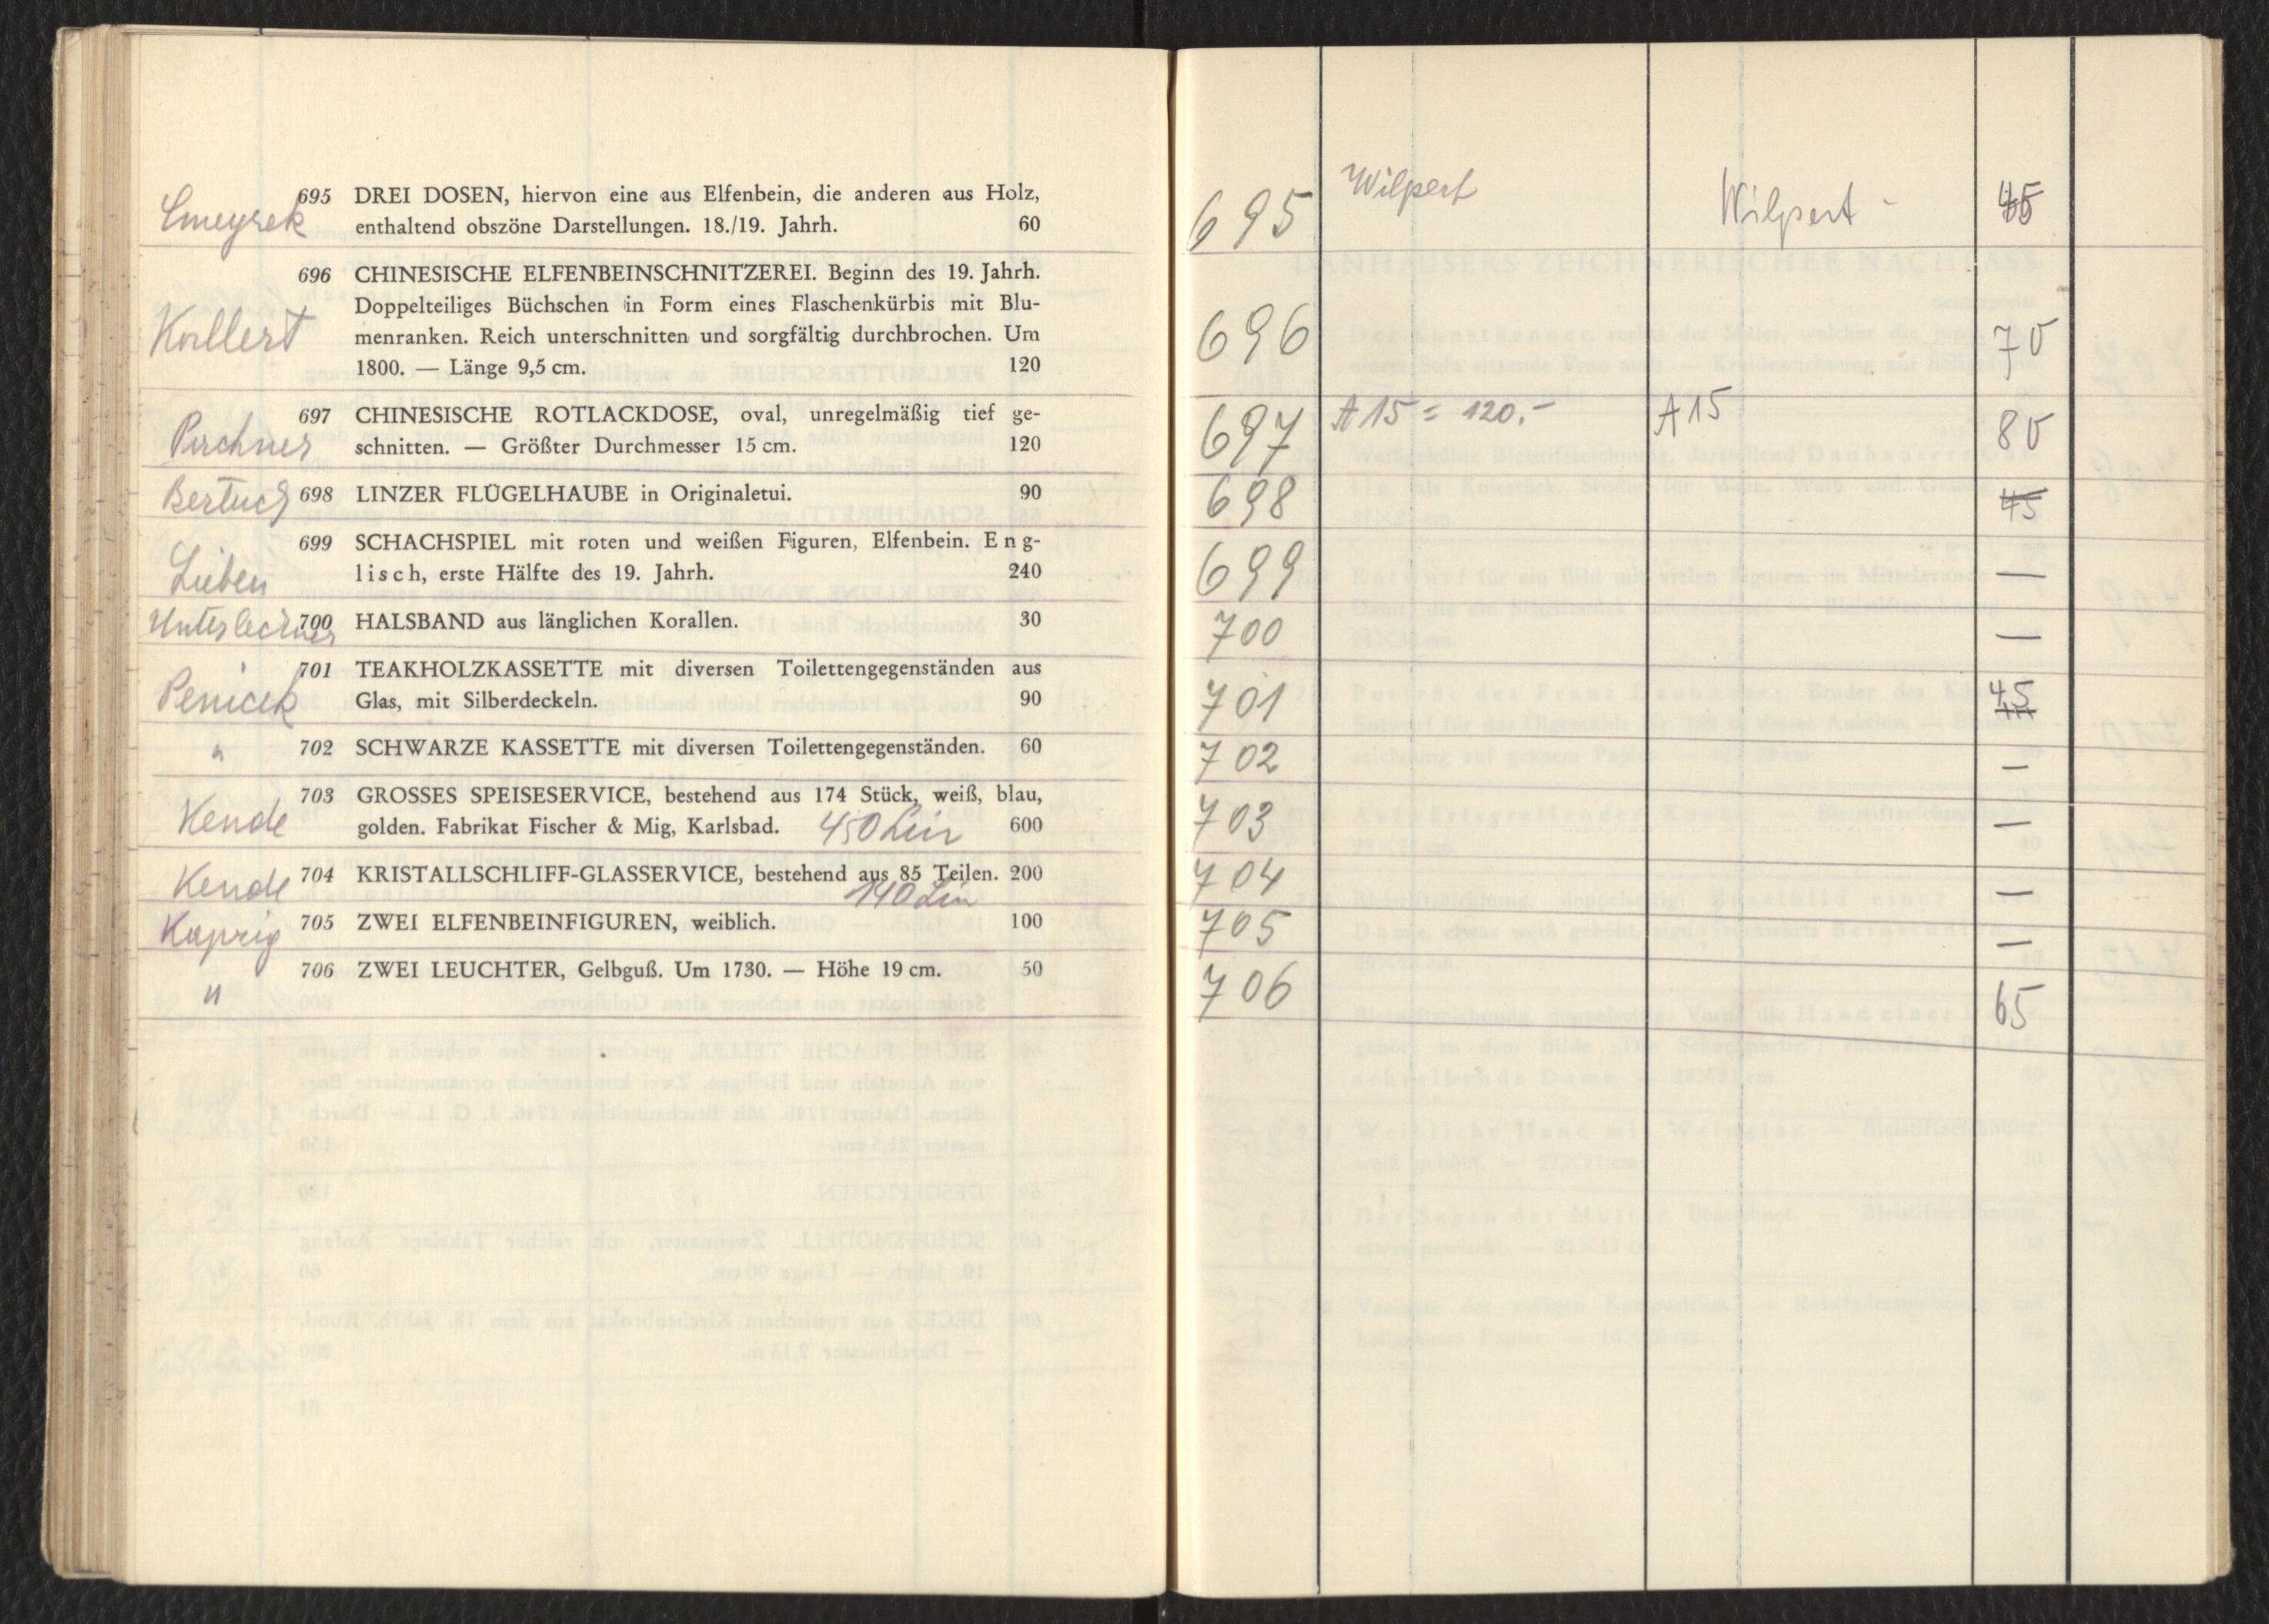 695 DREI DOSEN, hiervon eine aus Elfenbein, die anderen aus Holz,
enthaltend obszöne Darstellungen. 18./19. Jahrh. 60
696 CHINESISCHE ELFENBEINSCHNITZEREI. Beginn des 19. Jahrh.
Kollert
Doppelteiliges Büchschen in Form eines Flaschenkürbis mit Blu-
menranken. Reich unterschnitten und sorgfältig durchbrochen. Um
1800. — Länge 9,5 cm. 120
697 CHINESISCHE ROTLACKDOSE, oval, unregelmäßig tief ge-
Pirchner
schnitten. — Größter Durchmesser 15 cm. 120
Bertuch 698 LINZER FLÜGELHAUBE in Originaletui. 90
699 SCHACHSPIEL mit roten und weißen Figuren, Elfenbein. Eng-
Lieben
lisch, erste Hälfte des 19. Jahrh. 240
Unterlechner 700 HALSBAND aus länglichen Korallen. 30
701 TEAKHOLZKASSETTE mit diversen Toilettengegenständen aus
Penicek
Glas, mit Silberdeckeln. 90
" 702 SCHWARZE KASSETTE mit diversen Toilettengegenständen. 60
703 GROSSES SPEISESERVICE, bestehend aus 174 Stück, weiß, blau,
Kende
golden. Fabrikat Fischer & Mig, Karlsbad. 450 Lim 600
Kende 704 KRISTALLSCHLIFF-GLASSERVICE, bestehend aus 85 Teilen. 200
140 Lim
705 ZWEI ELFENBEINFIGUREN, weiblich. 100
706 ZWEI LEUCHTER, Gelbguß. Um 1730. — Höhe 19 cm. 50
"
695 Wilpert Wilpert -
696 70
697 A 15 = 120.- A 15 80
698 45
699 —
700 —
701 45
702 —
703 —
704 —
705 —
706 65